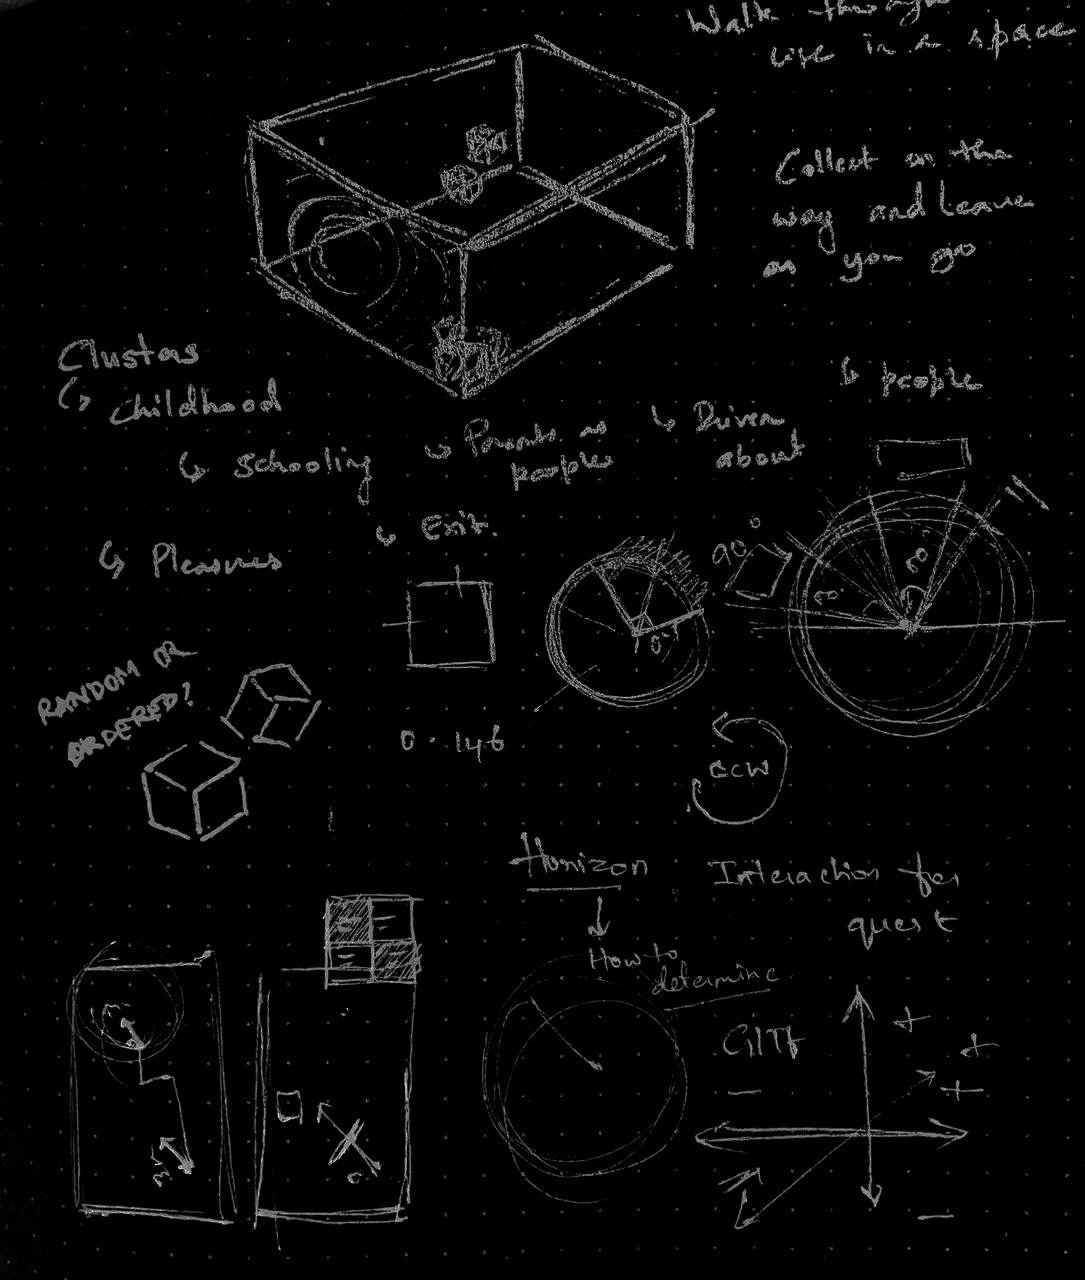 Walk through
life in a space
Collect on the
way and leave
as you go
Clusters
↳ Childhood
↳ Schooling
↳ Parents as
people
↳ Driven
about
↳ people
↳ Pleasures
↳ Exit.
90°
RANDOM OR
ORDERED?
0.146
CCW
Horizon
↓
How to
determine
Interaction for
quest
+
+
+
−
−